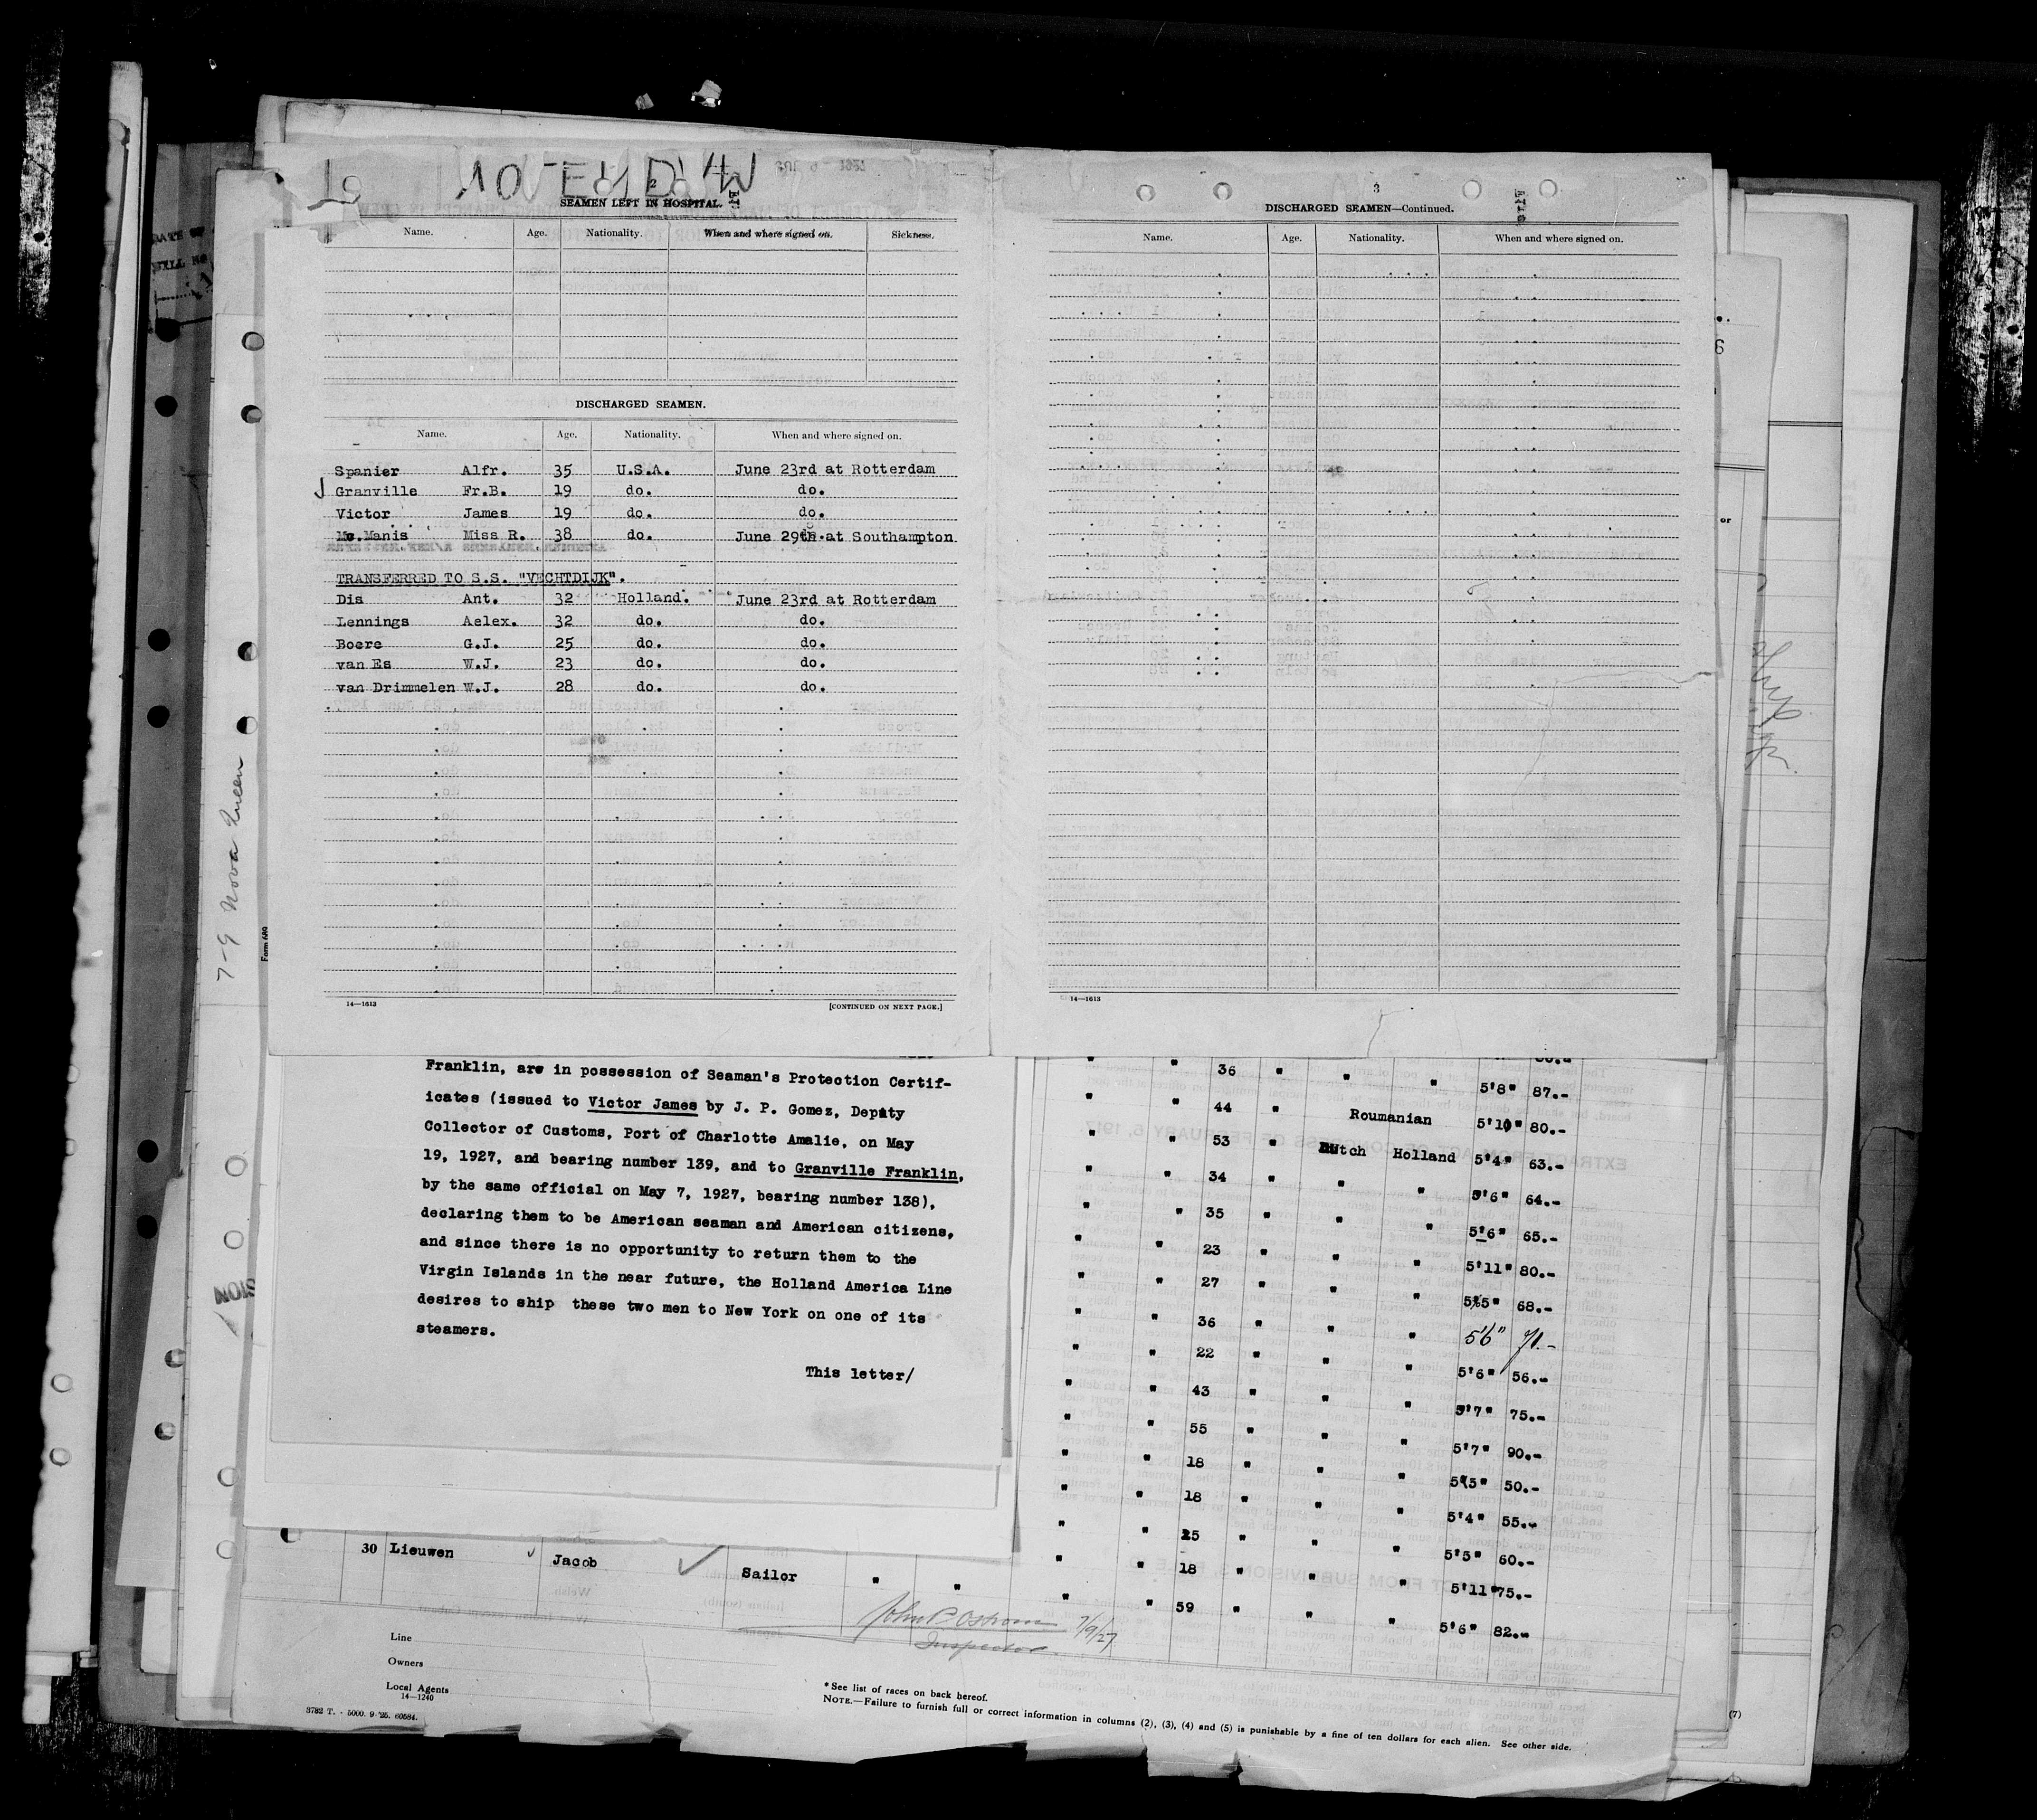 2
SEAMEN LEFT IN HOSPITAL.
Name. Age. Nationality. When and where signed on. Sickness.
DISCHARGED SEAMEN.
Name. Age. Nationality. When and where signed on.
Spanier Alfr. 35 U.S.A. June 23rd at Rotterdam
Granville Fr.B. 19 do. do.
Victor James 19 do. do.
Mc.Manis Miss R. 38 do. June 29th at Southampton
TRANSFERRED TO S.S. "VECHTDIJK".
Dis Ant. 32 Holland. June 23rd at Rotterdam
Lennings Aelex. 32 do. do.
Boere G.J. 25 do. do.
van Es W.J. 23 do. do.
van Drimmelen W.J. 28 do. do.
14—1613 [CONTINUED ON NEXT PAGE.]
3
DISCHARGED SEAMEN—Continued.
Name. Age. Nationality. When and where signed on.
14—1613
7-9 Nova Queen
Form 689
Franklin, are in possession of Seaman's Protection Certif-
icates (issued to Victor James by J. P. Gomez, Deputy
Collector of Customs, Port of Charlotte Amalie, on May
19, 1927, and bearing number 139, and to Granville Franklin,
by the same official on May 7, 1927, bearing number 138),
declaring them to be American seaman and American citizens,
and since there is no opportunity to return them to the
Virgin Islands in the near future, the Holland America Line
desires to ship these two men to New York on one of its
steamers.
This letter/
" " 36 " " " 5'8" 87.-
" " 44 " Roumanian 5'10" 80.-
" " 53 " Dutch Holland 5'4" 63.-
" " 34 " " " 5'6" 64.-
" " 35 " " " 5'6" 65.-
" " 23 " " " 5'11" 80.-
" " 27 " " " 5'5" 68.-
" " 36 " " " 5'6" 71.-
" " 22 " " " 5'6" 56.-
" " 43 " " " 5'7" 75.-
" " 55 " " " 5'7" 90.-
" " 18 " " " 5'5" 50.-
" " 18 " " " 5'4" 55.-
" " 25 " " " 5'5" 60.-
" " 18 " " " 5'11" 75.-
" " 59 " " " 5'6" 82.-
30 Lieuwen Jacob Sailor " "
John B Ostrom 7/9/27
Inspector
Line
Owners
Local Agents
14—1240
3782 T. - 5000. 9-'25. 60584.
* See list of races on back hereof.
NOTE.—Failure to furnish full or correct information in columns (2), (3), (4) and (5) is punishable by a fine of ten dollars for each alien. See other side.
(7)
or
6